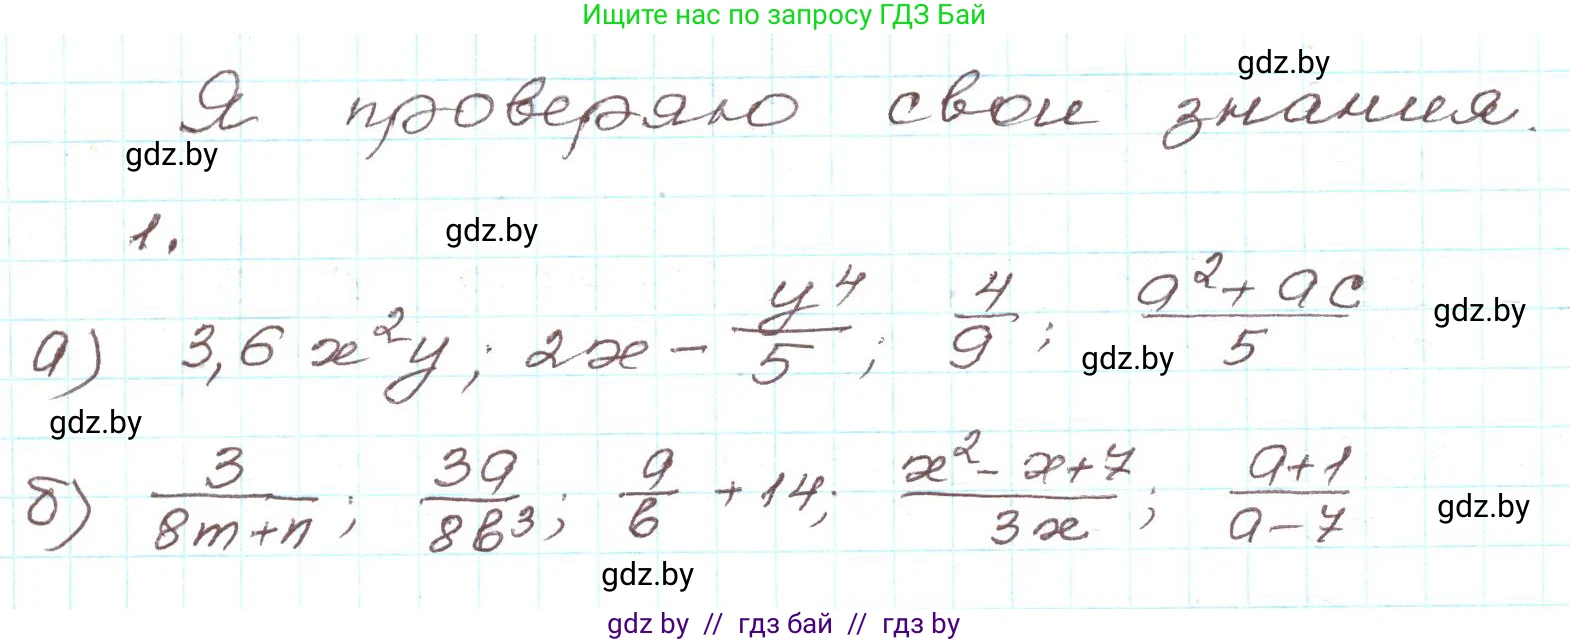 Ищите нас по запросу ГДЗ Бай
gdz.by
Я проверяю свои знания.
gdz.by
1.
gdz.by
а) 3,6x²y; 2x - y⁴/5; 4/9; (a² + ac)/5
gdz.by
gdz.by
gdz.by
б) 3/(8m+n); 3a/(8b³); a/b + 14; (x² - x + 7)/(3x); (a+1)/(a-7)
gdz.by
gdz.by
gdz.by // гдз бай // гдз by